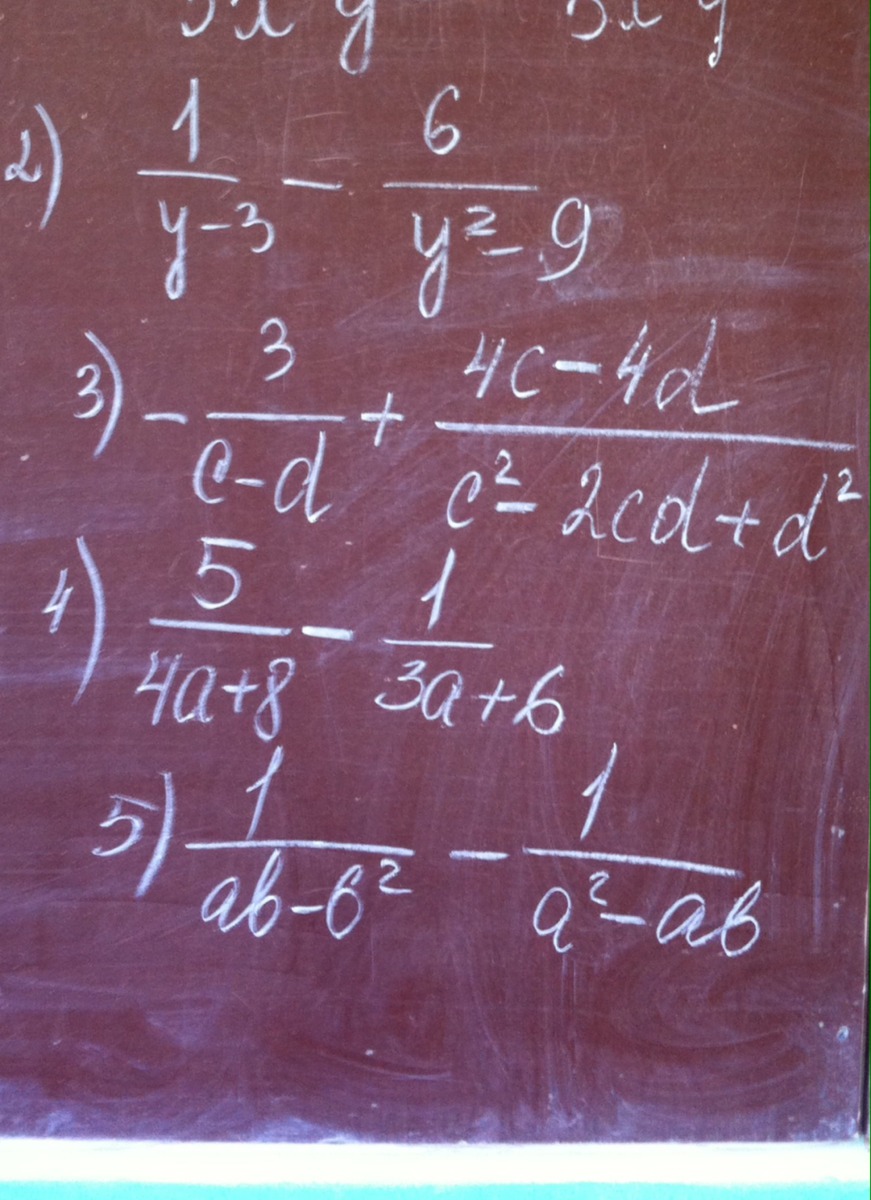 2) \frac{1}{y-3} - \frac{6}{y^2-9}
3) -\frac{3}{c-d} + \frac{4c-4d}{c^2-2cd+d^2}
4) \frac{5}{4a+8} - \frac{1}{3a+6}
5) \frac{1}{ab-b^2} - \frac{1}{a^2-ab}